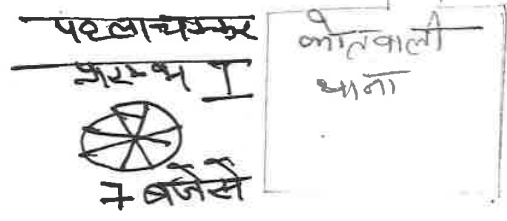 पहलाचक्कर
प्रारम्भ I
7 बजेसे
कोतवाली
थाना